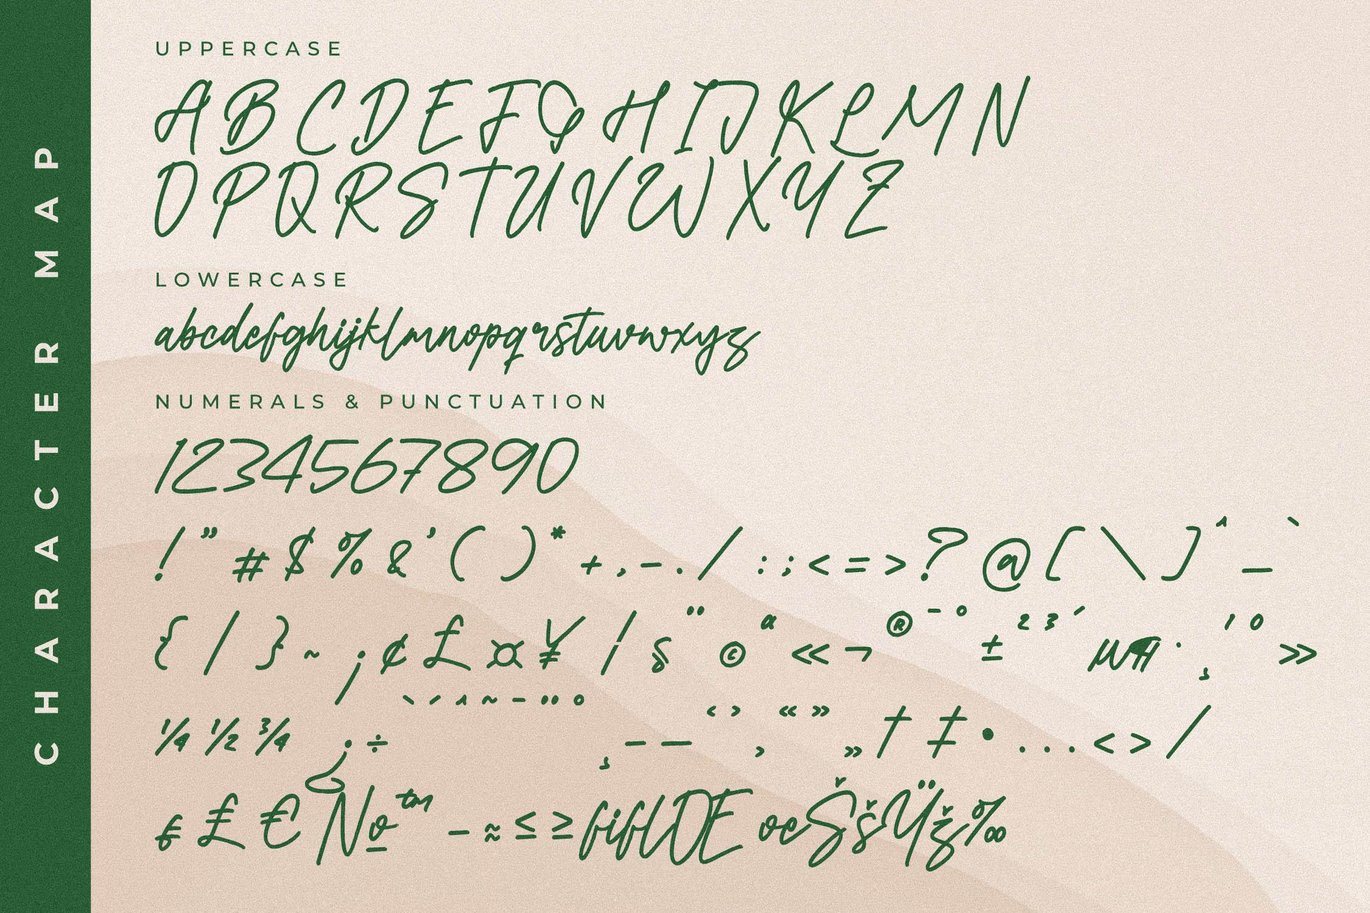 CHARACTER MAP
UPPERCASE
ABCDEFGHIJKLMN
OPQRSTUVWXYZ
LOWERCASE
abcdefghijklmnopqrstuvwxyz
NUMERALS & PUNCTUATION
1234567890
!"#$%&'()*+,-./:;<=>?@[\]^_`
{|}~¡¢£¤¥¦§¨©ª«¬®¯°±²³´µ¶·¸¹º»
¼½¾¿÷ˋˊˆ˜ˉ¨°¸–—‘’‚“”„†‡•...‹›⁄
₣₤€№™−≈≤≥fiflŒœŠšŸž‰